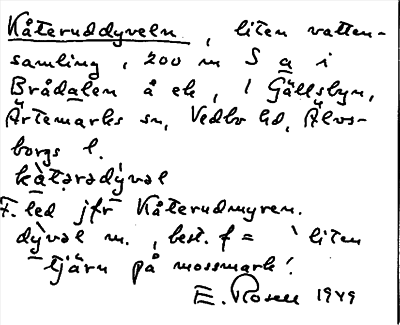 Kåteruddyveln, liten vatten-
samling, 200 m S a i
Brådalen å ek, i Gällsbyn,
Ärtemarks sn, Vedbo hd, Älvs-
borgs l.
kåtərədỳvəl
F. led jfr Kåterudmyren.
dỳvəl m., best. f = 'liten
tjärn på mossmark'.
E. Rosell 1949